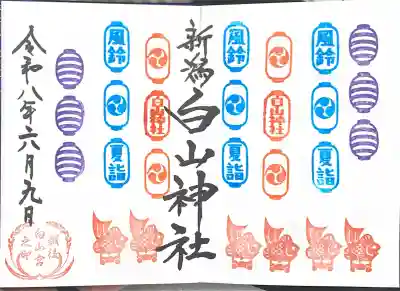 風鈴
夏詣
白山神社
風鈴
夏詣
白山神社
風鈴
夏詣
新潟白山神社
令和八年六月九日
越後
白山宮
之印